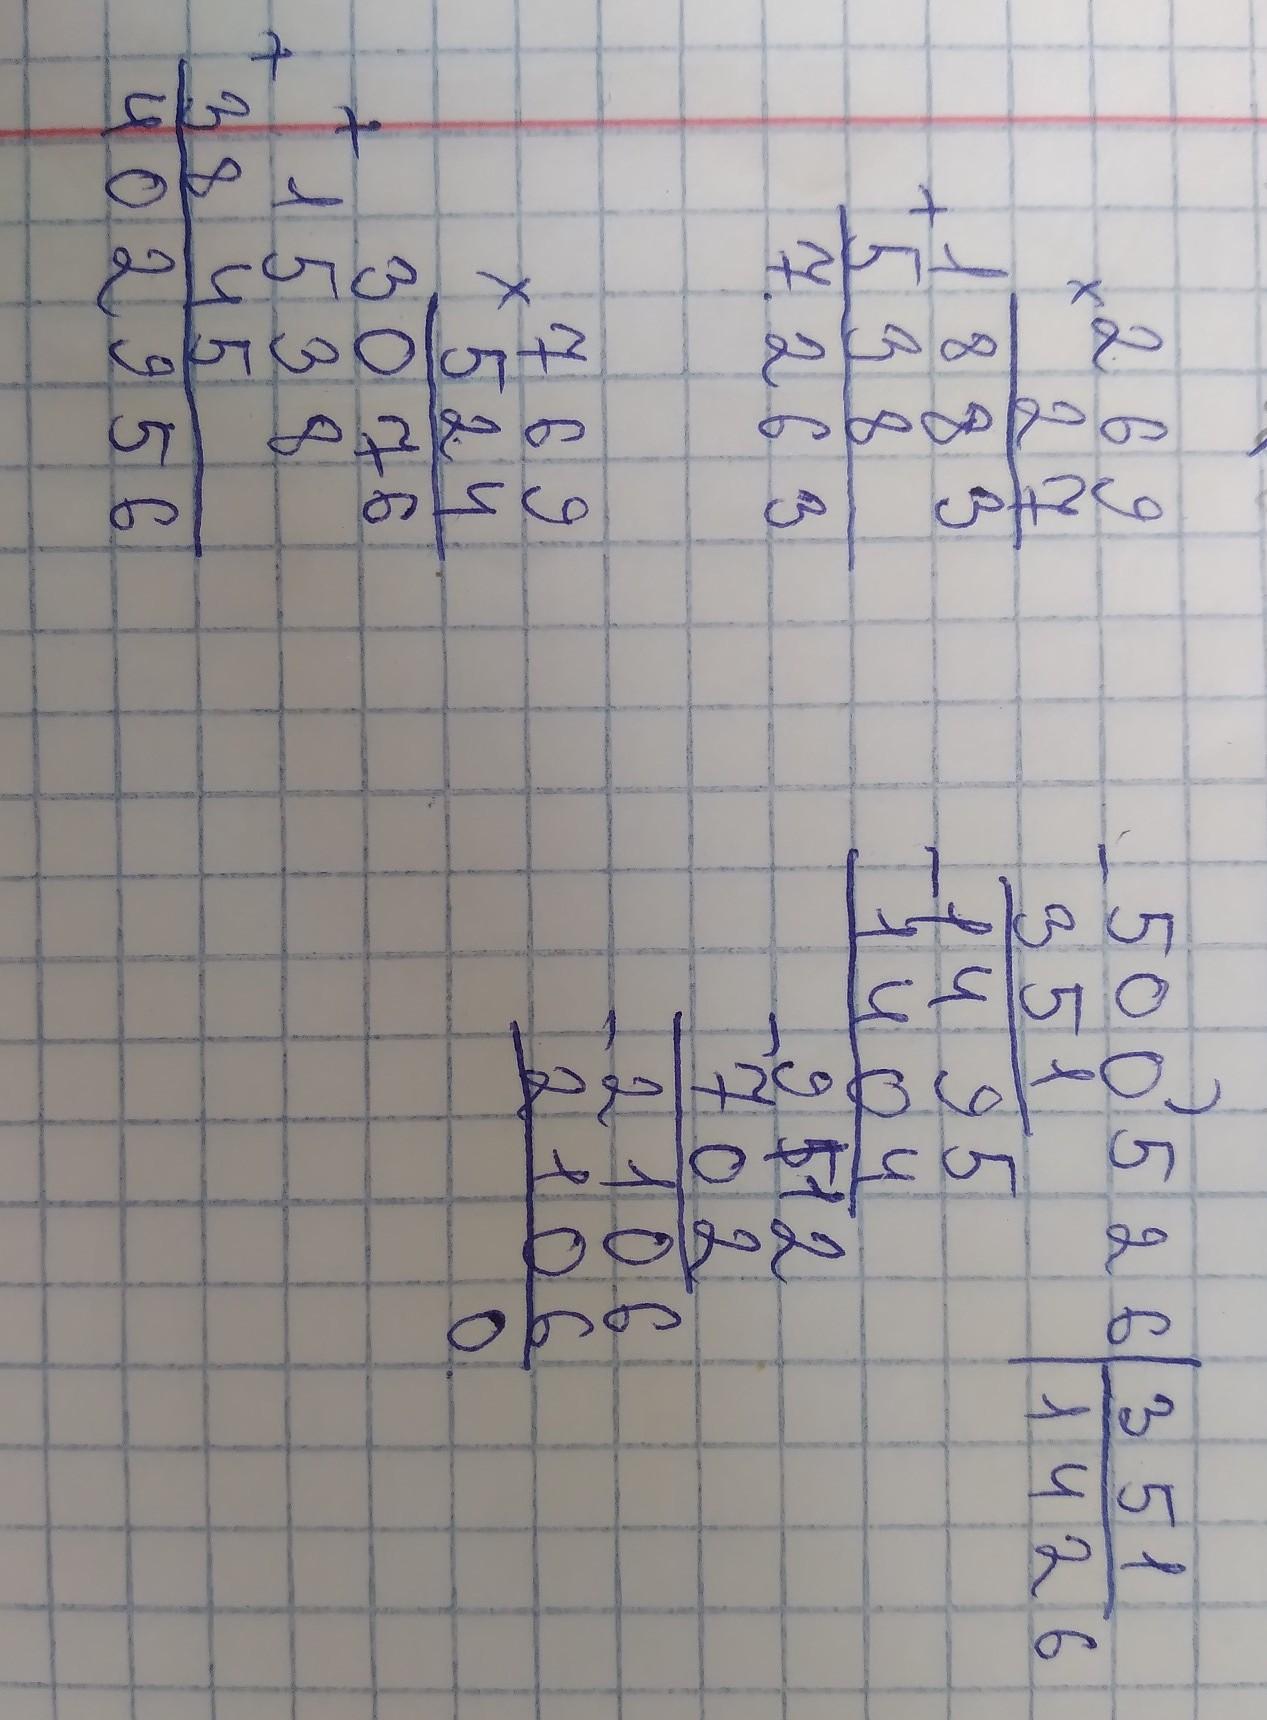 × 269
27
1883
+ 538
7263
× 769
524
3076
+ 1538
+ 3845
402956
- 500526 | 351
351 1426
- 1495
1404
- 912
702
- 2106
2106
0